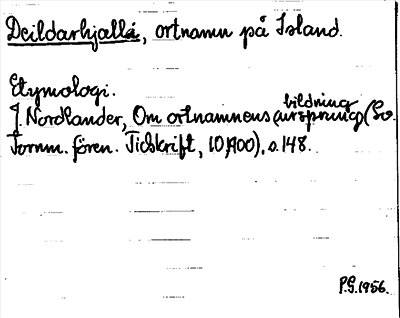 Deildarhjallá, ortnamn på Island.
Etymologi.
J. Nordlander, Om ortnamnens bildning (ursprung) (Sv.
Fornm. fören. Tidskrift, 10,1900), s. 148.
P.G. 1956.